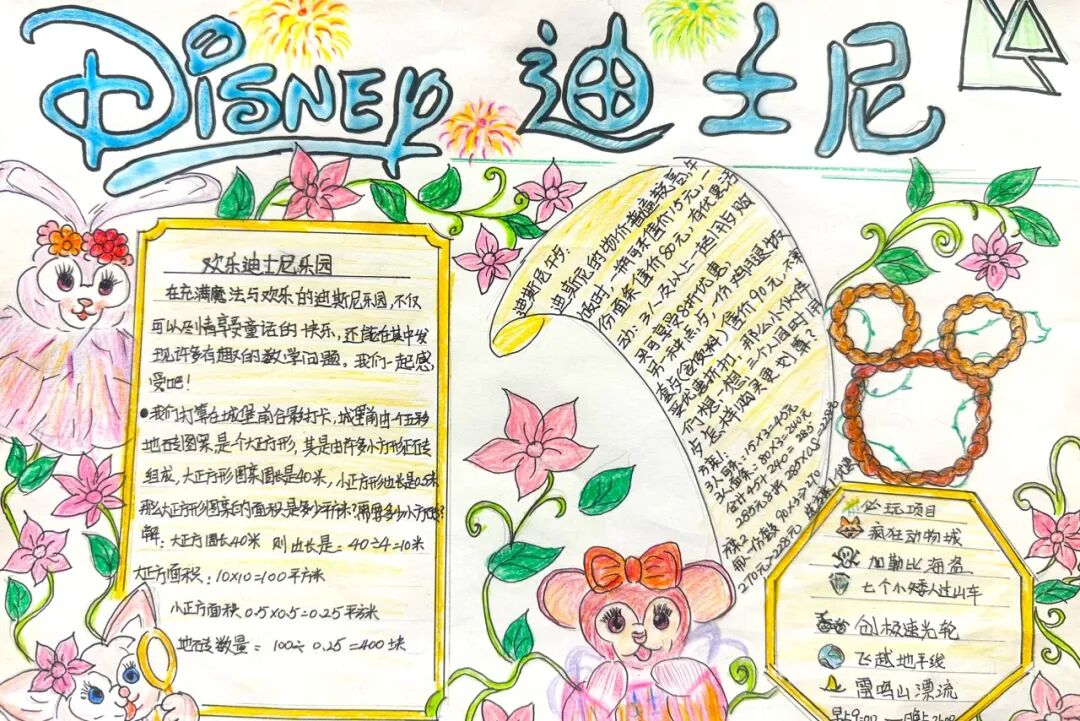 DISNEY 迪士尼
欢乐迪士尼乐园
在充满魔法与欢乐的迪斯尼乐园,不仅
可以尽情享受童话的快乐,还能在其中发
现许多有趣的数学问题。我们一起感
受吧!
●我们打算在城堡前合影打卡,城堡前由一个五彩
地砖图案是个大正方形,其是由许多小方形砖
组成,大正方形图案周长是40米,小正方形边长是0.5米
那么大正方形图案的面积是多少平方米?需要多少小方砖?
解:大正方周长40米 则边长是:40÷4=10米
大正方面积:10×10=100平方米
小正方面积0.5×0.5=0.25平方米
地砖数量:100÷0.25=400块
迪斯尼午步:
迪斯尼的物价普遍较高,午
饭时,热可可售价15元,一
份面条售价80元,有优惠活
动:3人及以上一起拼单购
买可享受8折优惠,
另一种点与一份烤鸡腿饭
套点(包饮料)售价90元,不享
受优惠折扣,那么小伙伴
们想一想,三个人同时用
点怎样购买更划算?
方案1:
3人可可:15×3=45元
3人面条:80×3=240元
合计45+240=285元
285元8折 285×0.8=228元
方案2
每人一份套餐 90×3=270
270元>228元
必玩项目
疯狂动物城
加勒比海盗
七个小矮人过山车
创极速光轮
飞越地平线
雷鸣山漂流